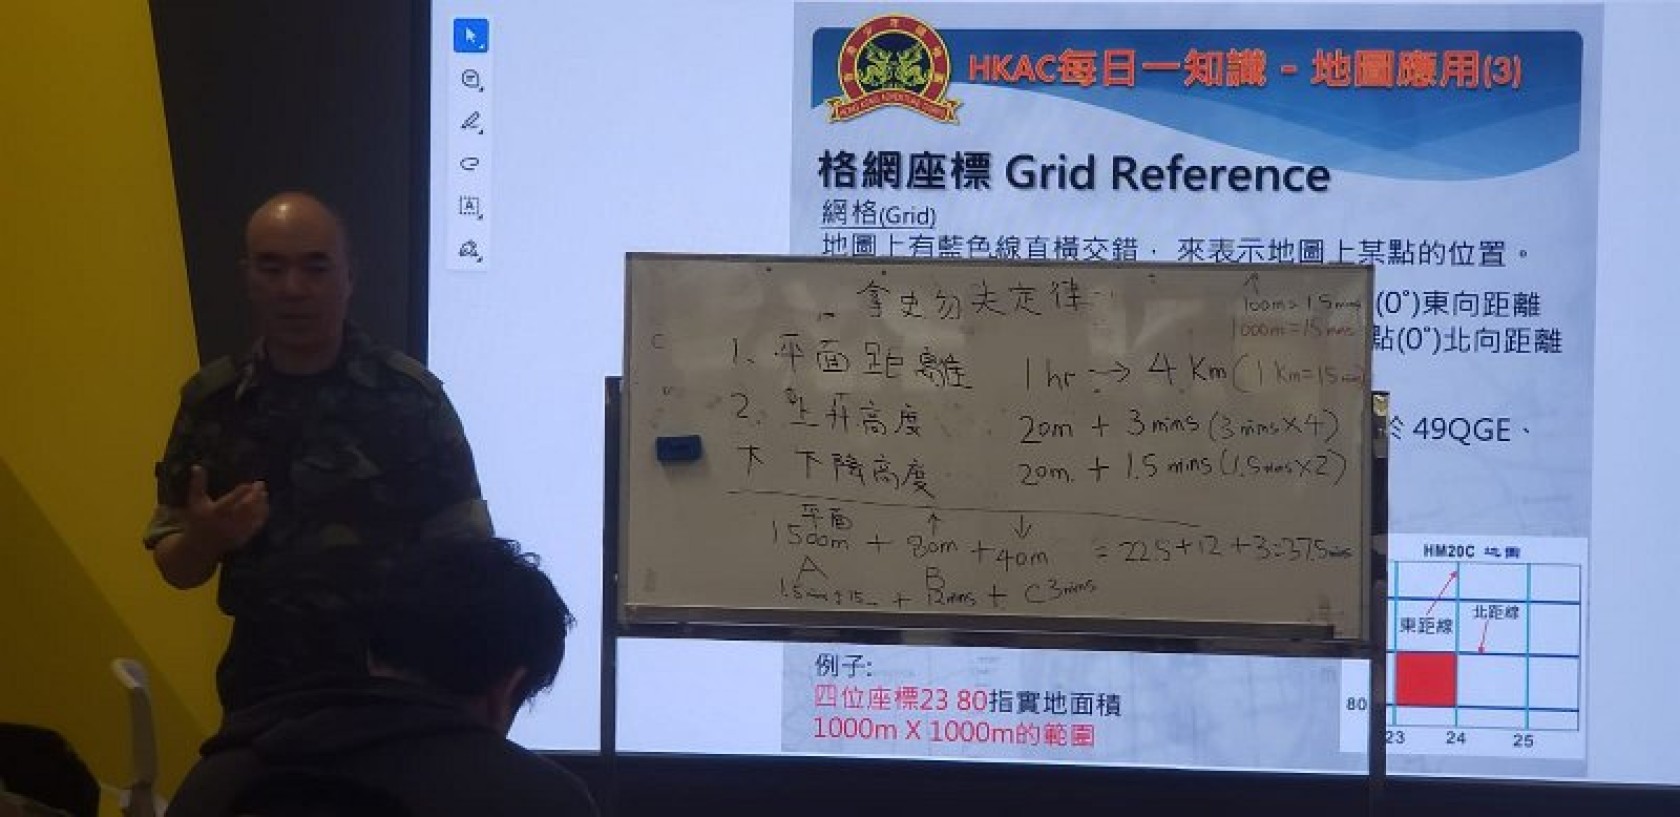 HKAC每日一知識 - 地圖應用(3)
HONG KONG ADVENTURE CORPS
格網座標 Grid Reference
網格(Grid)
地圖上有藍色線直橫交錯， 來表示地圖上某點的位置。
(0°)東向距離
點(0°)北向距離
於 49QGE、
拿史勿夫定律
↑
100m=15mins
1000m=15mins
1、平面距離 1hr → 4 Km (1 Km=15min)
2、上升高度 20m + 3 mins (3 mins×4)
下 下降高度 20m + 1.5 mins (1.5mins×2)
平面 ↑ ↓
1500m + 80m + 40m = 22.5+12+3=37.5mins
A B
+ 12mins + C 3mins
例子:
四位座標23 80指實地面積
1000m X 1000m的範圍
HM20C 地圖
東距線
北距線
80
23 24 25